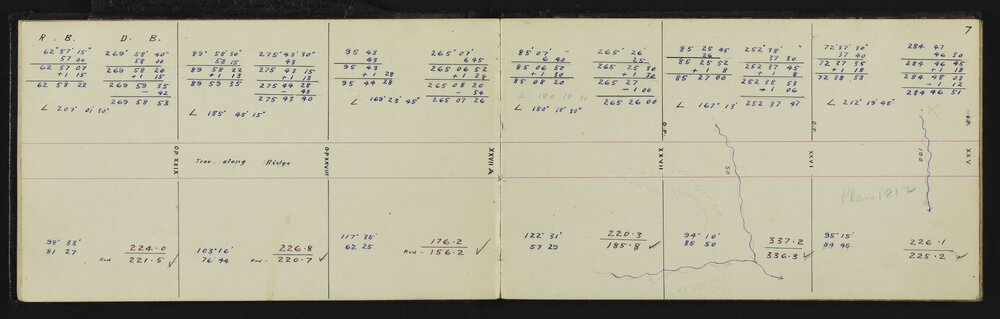 7
R. B. D. B.
62° 57' 15" 269° 58' 40"
57 00 58 00
62 57 07 269 58 20
+1 15 +1 15
62 58 22 269 59 35
- 42
269 58 53
∠ 207° 01' 30"
89° 58' 30" 275° 43' 30"
58 15 43
89 58 22 275 43 15
+1 13 +1 13
89 59 35 275 44 28
- 48
275 43 40
∠ 185° 45' 15"
95 43 265° 07'
43 6 45
95 43 265 06 52
+1 28 +1 28
95 44 28 265 08 20
- 54
∠ 169° 23' 45" 265 07 26
85° 07' 265° 26'
6 40 25
85 06 50 265 25 30
+1 30 +1 30
85 08 20 265 27
- 1 00
∠ 180° 18' 30" 265 26 00
85 25 45 252° 38'
26 37 30
85 25 52 252 37 45
+1 8 +1 8
85 27 00 252 38 53
- 1 06
∠ 167° 13' 252 37 47
72° 37' 30" 284 47
37 40 46 30
72 37 35 284 46 45
+1 18 +1 18
72 38 53 284 48 03
- 1 12
284 46 51
∠ 212° 19' 45"
O.P. XXIX
Trav along Ridge
O.P. XXVIII
XXVII A
O.P.
XXVII
50
O.P.
XXVI
190
XXV
Plan 1812
98° 33'
81 27
224.0
Red 221.5
103° 16'
76 44
226.8
Red - 220.7
117° 35'
62 25
176.2
Red - 156.2
122° 31'
57 29
220.3
185.8
94° 10'
85 50
337.2
336.3
95° 15'
84 45
226.1
225.2